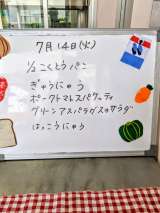 7月14日(火)
1/2こくとうパン
ぎゅうにゅう
ポークトマトスパゲッティ
グリーンアスパラガスのサラダ
はっこうにゅう